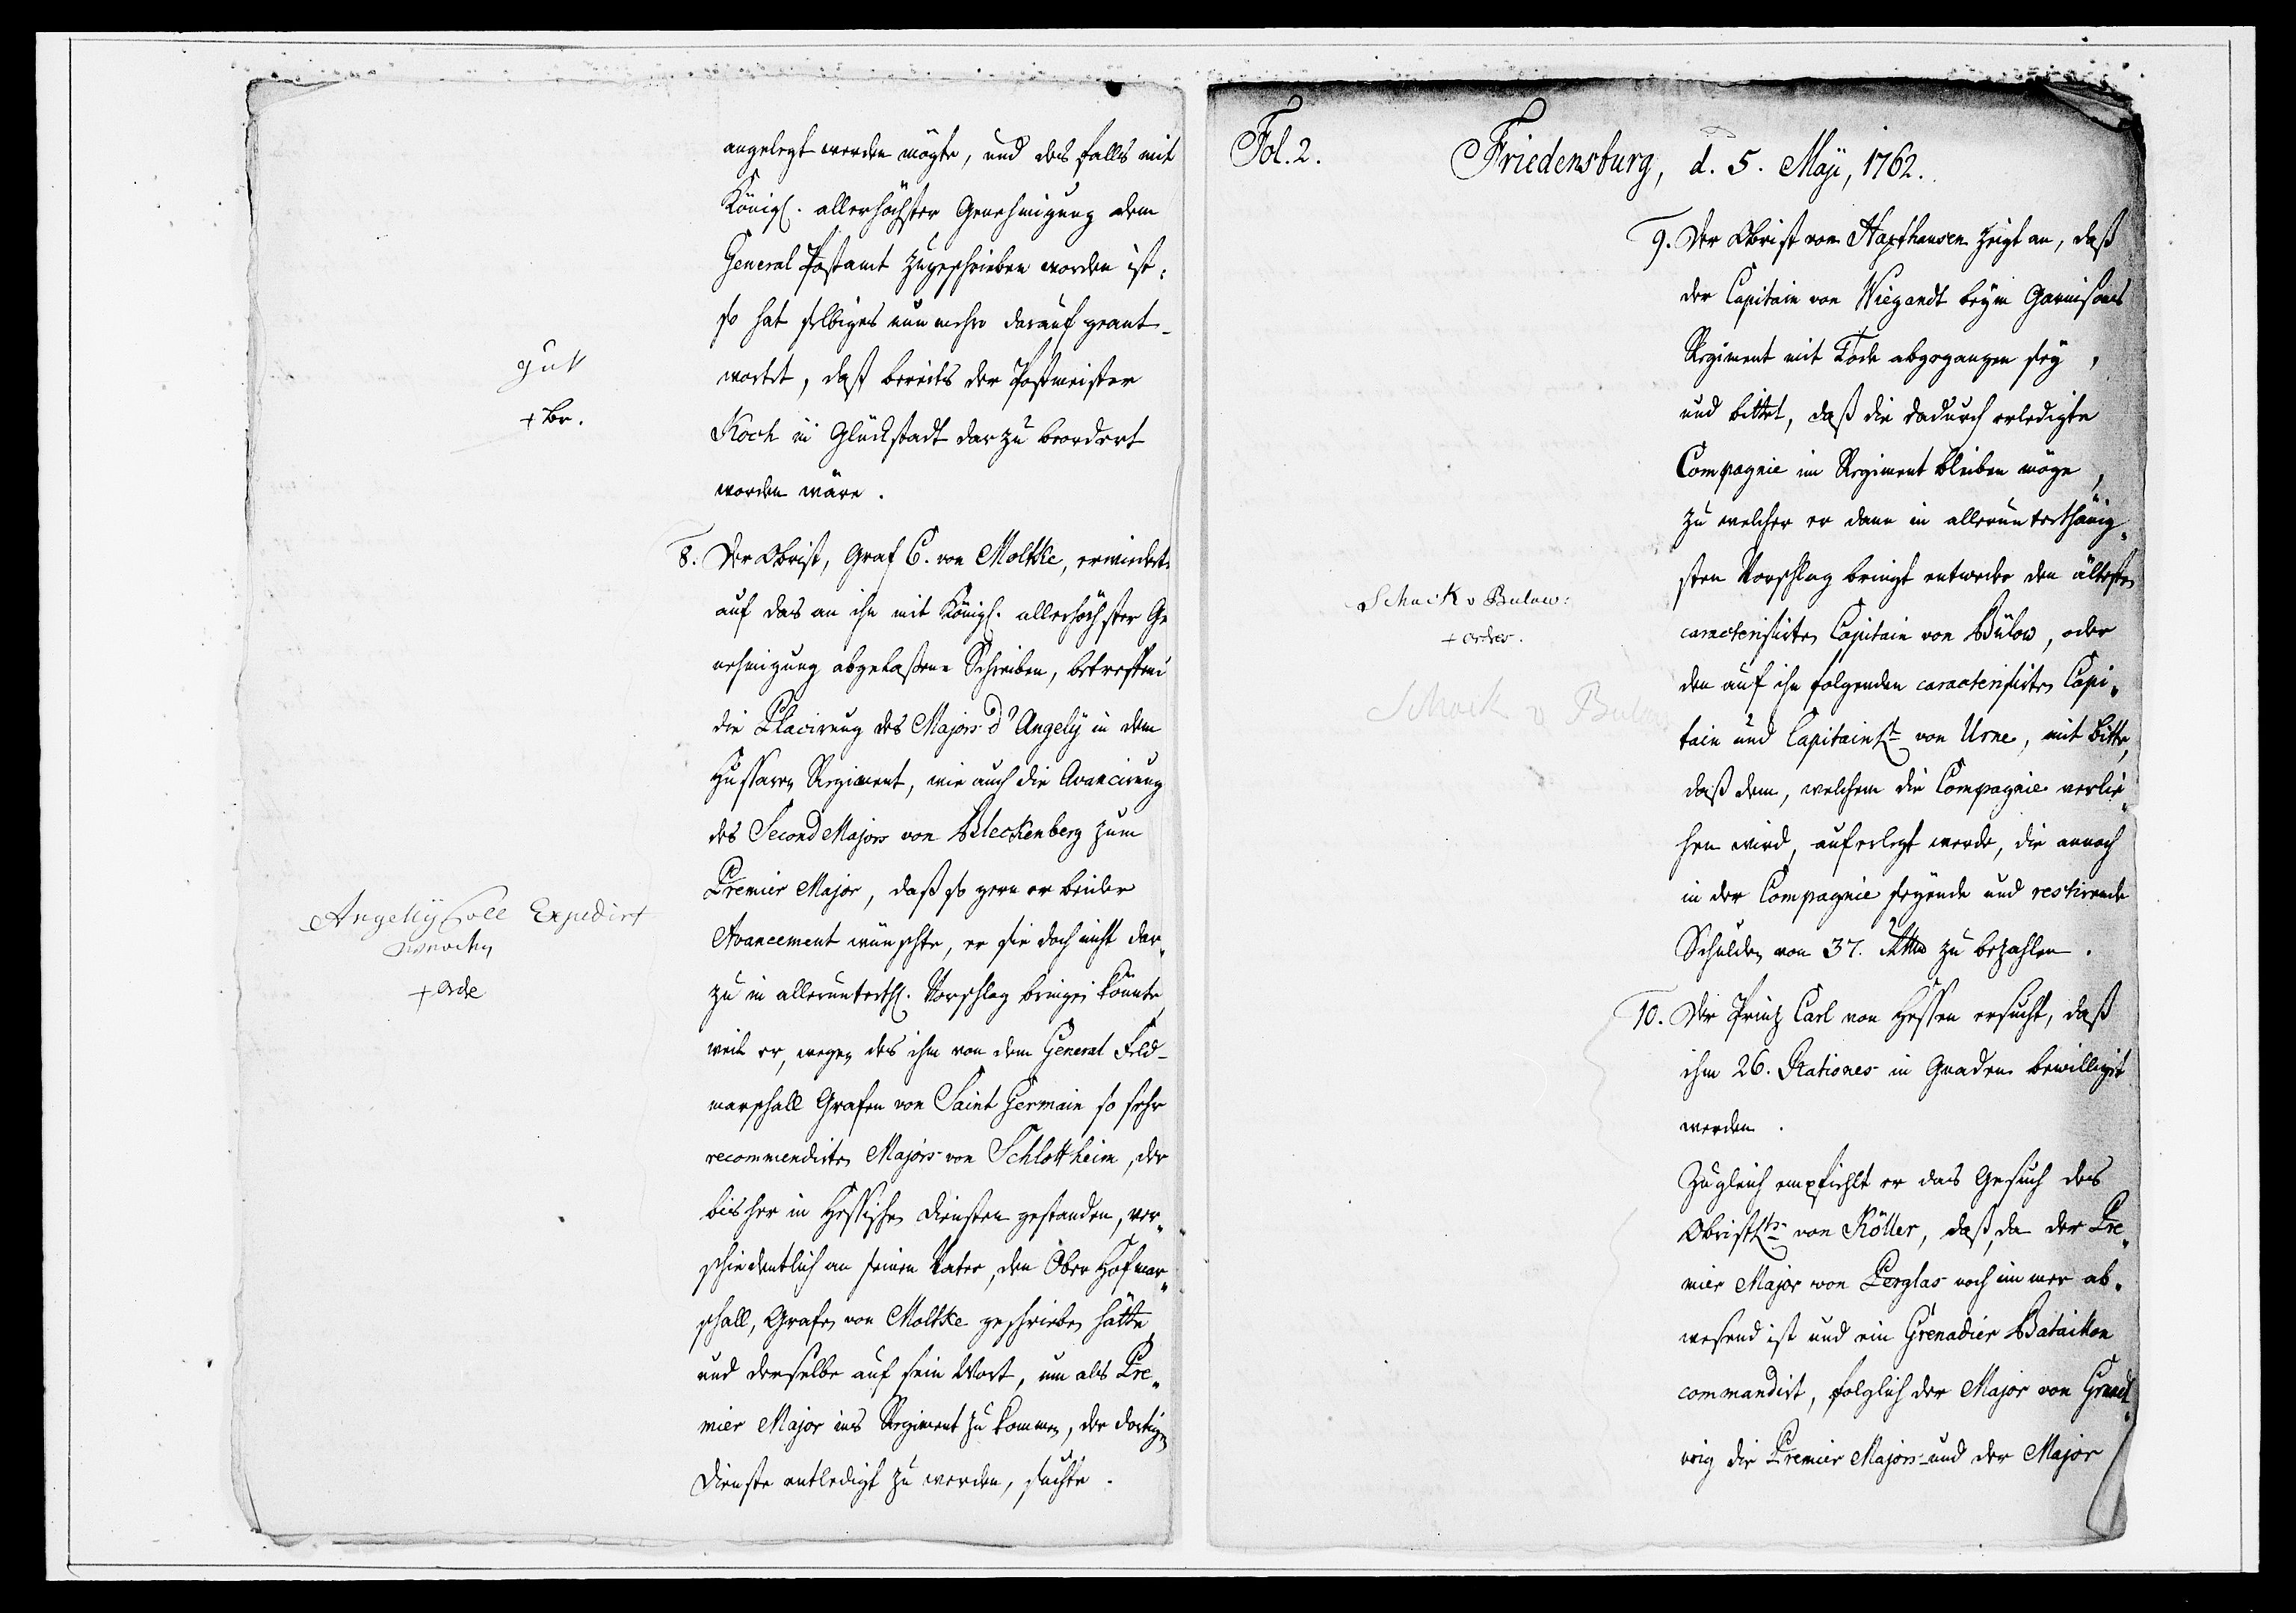 angelegt werden mögte, und des falls mit
Königl. allerhöchster Genehmigung dem
General Postamt zugeschrieben worden ist:
so hat selbiges nunmehro darauf geant-
wortet, daß bereits der Postmeister
Koch in Glückstadt darzu beordert
worden wäre.
gut
+ Br.
8. Der Obrist, Graf C. von Moltke, erwiedert
auf das an ihn mit Königl. allerhöchster Ge
nehmigung abgelaßene Schreiben, betreffend
die Placirung des Majors d'Angelÿ in dem
Hussaren Regiment, wie auch die Avancirung
des Second Majors von Bleckenberg zum
Premier Major, daß so gern er beider
Avancement wünschte, er sie doch nicht dar„
zu in allerunterth. Vorschlag bringen könnte,
weil er, wegen des ihm von dem General Feld-
marschall Grafen von Saint Germain so sehr
recommendirten Majors von Schlottheim, der
bisher in Hessischen Diensten gestanden, ver„
schiedentlich an seinen Vater, den Ober Hofmar„
schall, Grafen von Moltke geschrieben hätte,
und derselbe auf sein Wort, um als Pre„
mier Major ins Regiment zu kommen, der dortigen
Dienste entledigt zu werden, suchte.
Angelÿ soll Expedirt
+ orde
Fol. 2.
Friedensburg, d. 5. Maji, 1762.
9. Der Obrist von Haxthausen zeigt an, daß
der Capitain von Wiegandt beym Garnisons
Regiment mit Tode abgegangen sey,
und bittet, daß die dadurch erledigte
Compagnie im Regiment bleiben möge,
zu welcher er dann in allerunterthänig„
sten Vorschlag bringt entweder den ältesten
caracterisirten Capitain von Bülow, oder
den auf ihn folgenden caracterisirten Capi„
tain und Capitain Lt. von Urne, mit Bitte,
daß dem, welchem die Compagnie verlie„
hen wird, auferlegt werde, die annoch
in der Compagnie seyende und restirende
Schulden von 37. Rthlr zu bezahlen.
Schack v Bulow:
+ order.
Schack v Bulow
10. Der Prinz Carl von Hessen ersucht, daß
ihm 26. Rationes in Gnaden bewilligt
werden.
Zugleich empfiehlt er das Gesuch des
Obrist Lts. von Köller, daß, da der Pre„
mier Major von Perglas noch immer ab„
wesend ist und ein Grenadier Bataillon
commandirt, folglich der Major von Grand„
vig die Premier Majors- und der Major